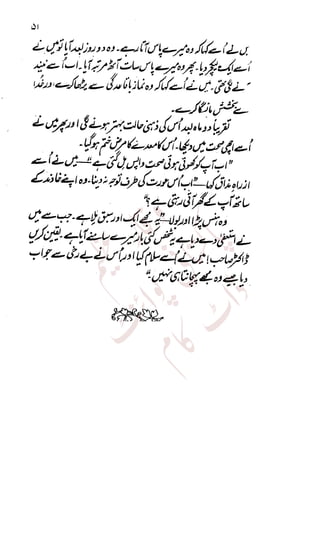 ۵۱
میں نے اُسے کہا کہ وہ میرے پاس آتا رہے۔ وہ دو روز بعد آیا تو میں نے
اُسے ایک لیکچر دیا۔ پھر وہ میرے پاس سات آٹھ مرتبہ آیا۔ اب اُسے نیند
آنے لگی تھی۔ میں نے اُسے کہا کہ وہ نماز باقاعدگی سے پڑھا کرے اور خدا
سے بخشش مانگا کرے۔
تقریباً دو ماہ بعد اُس کی ذہنی حالت بہتر ہونے لگی اور پھر میں نے
اُسے اچھی صحت میں دیکھا۔ اُس کا معدے کا مرض ختم ہو گیا۔
"اب آپ کو کھوئی ہوئی صحت واپس مل گئی ہے" — میں نے اُسے
ازراہِ مذاق کہا — "اب اُس عورت کی طرف توجہ نہ دینا۔ وہ اپنے خاوند کے
ساتھ آپ کے گھر آتی رہتی ہے؟"
وہ ہنس پڑا اور بولا — "مجھے ایک اور سبق ملا ہے۔ جب سے میں
نے استعفیٰ دے دیا ہے یہ شخص کئی بار میرے سامنے آیا ہے۔ یقین کریں
ڈاکٹر صاحب! میں نے اُسے سلام کیا اور اُس نے بے رُخی سے جواب
دیا جیسے وہ مجھے پہچانتا ہی نہیں۔"
ڈاٹ کام